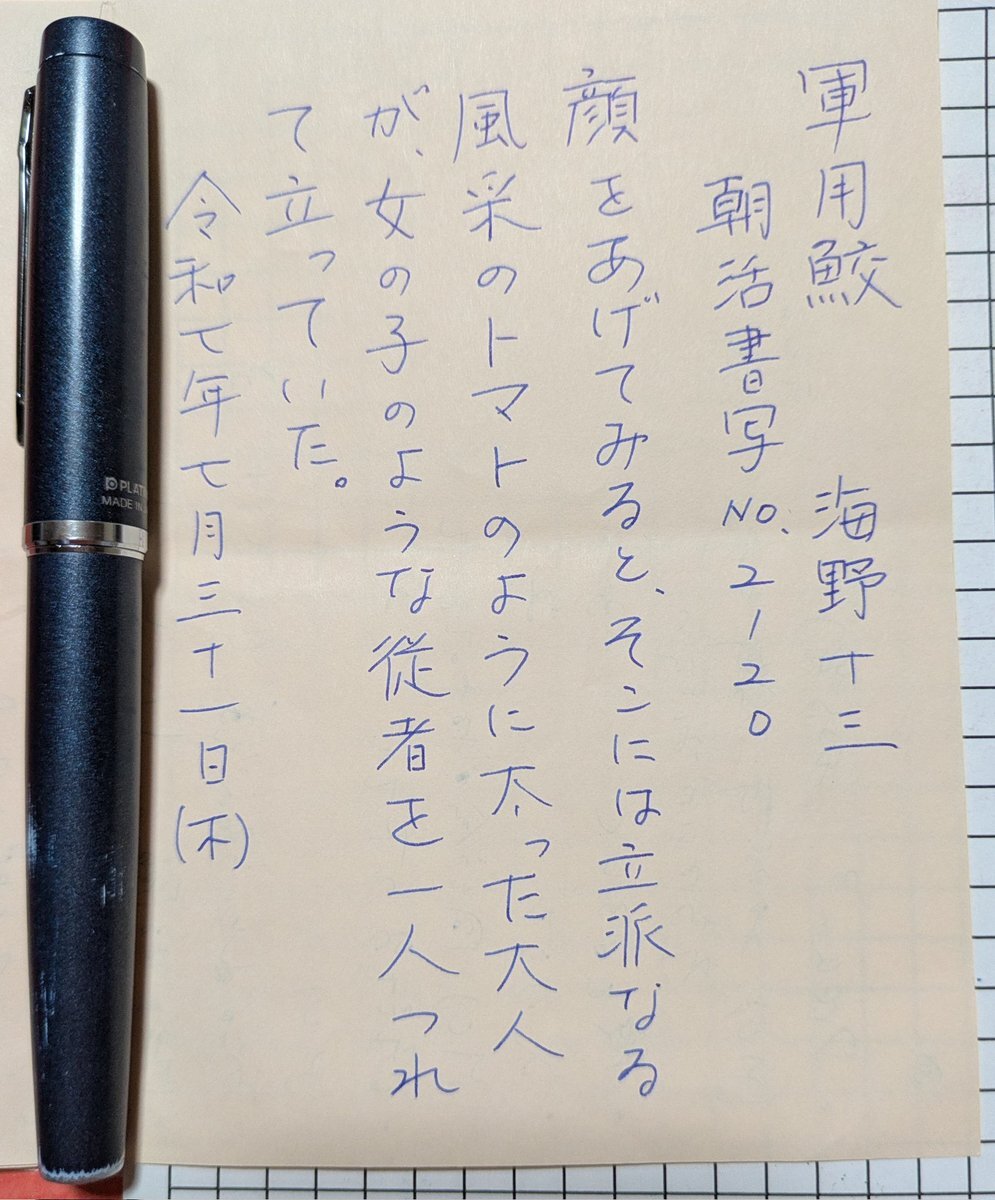 軍用鮫　海野十三
朝活書写No.2120
顔をあげてみると、そこには立派なる
風采のトマトのように太った大人
が、女の子のような従者を一人つれ
て立っていた。
令和七年七月三十一日(木)
PLAT
MADE IN